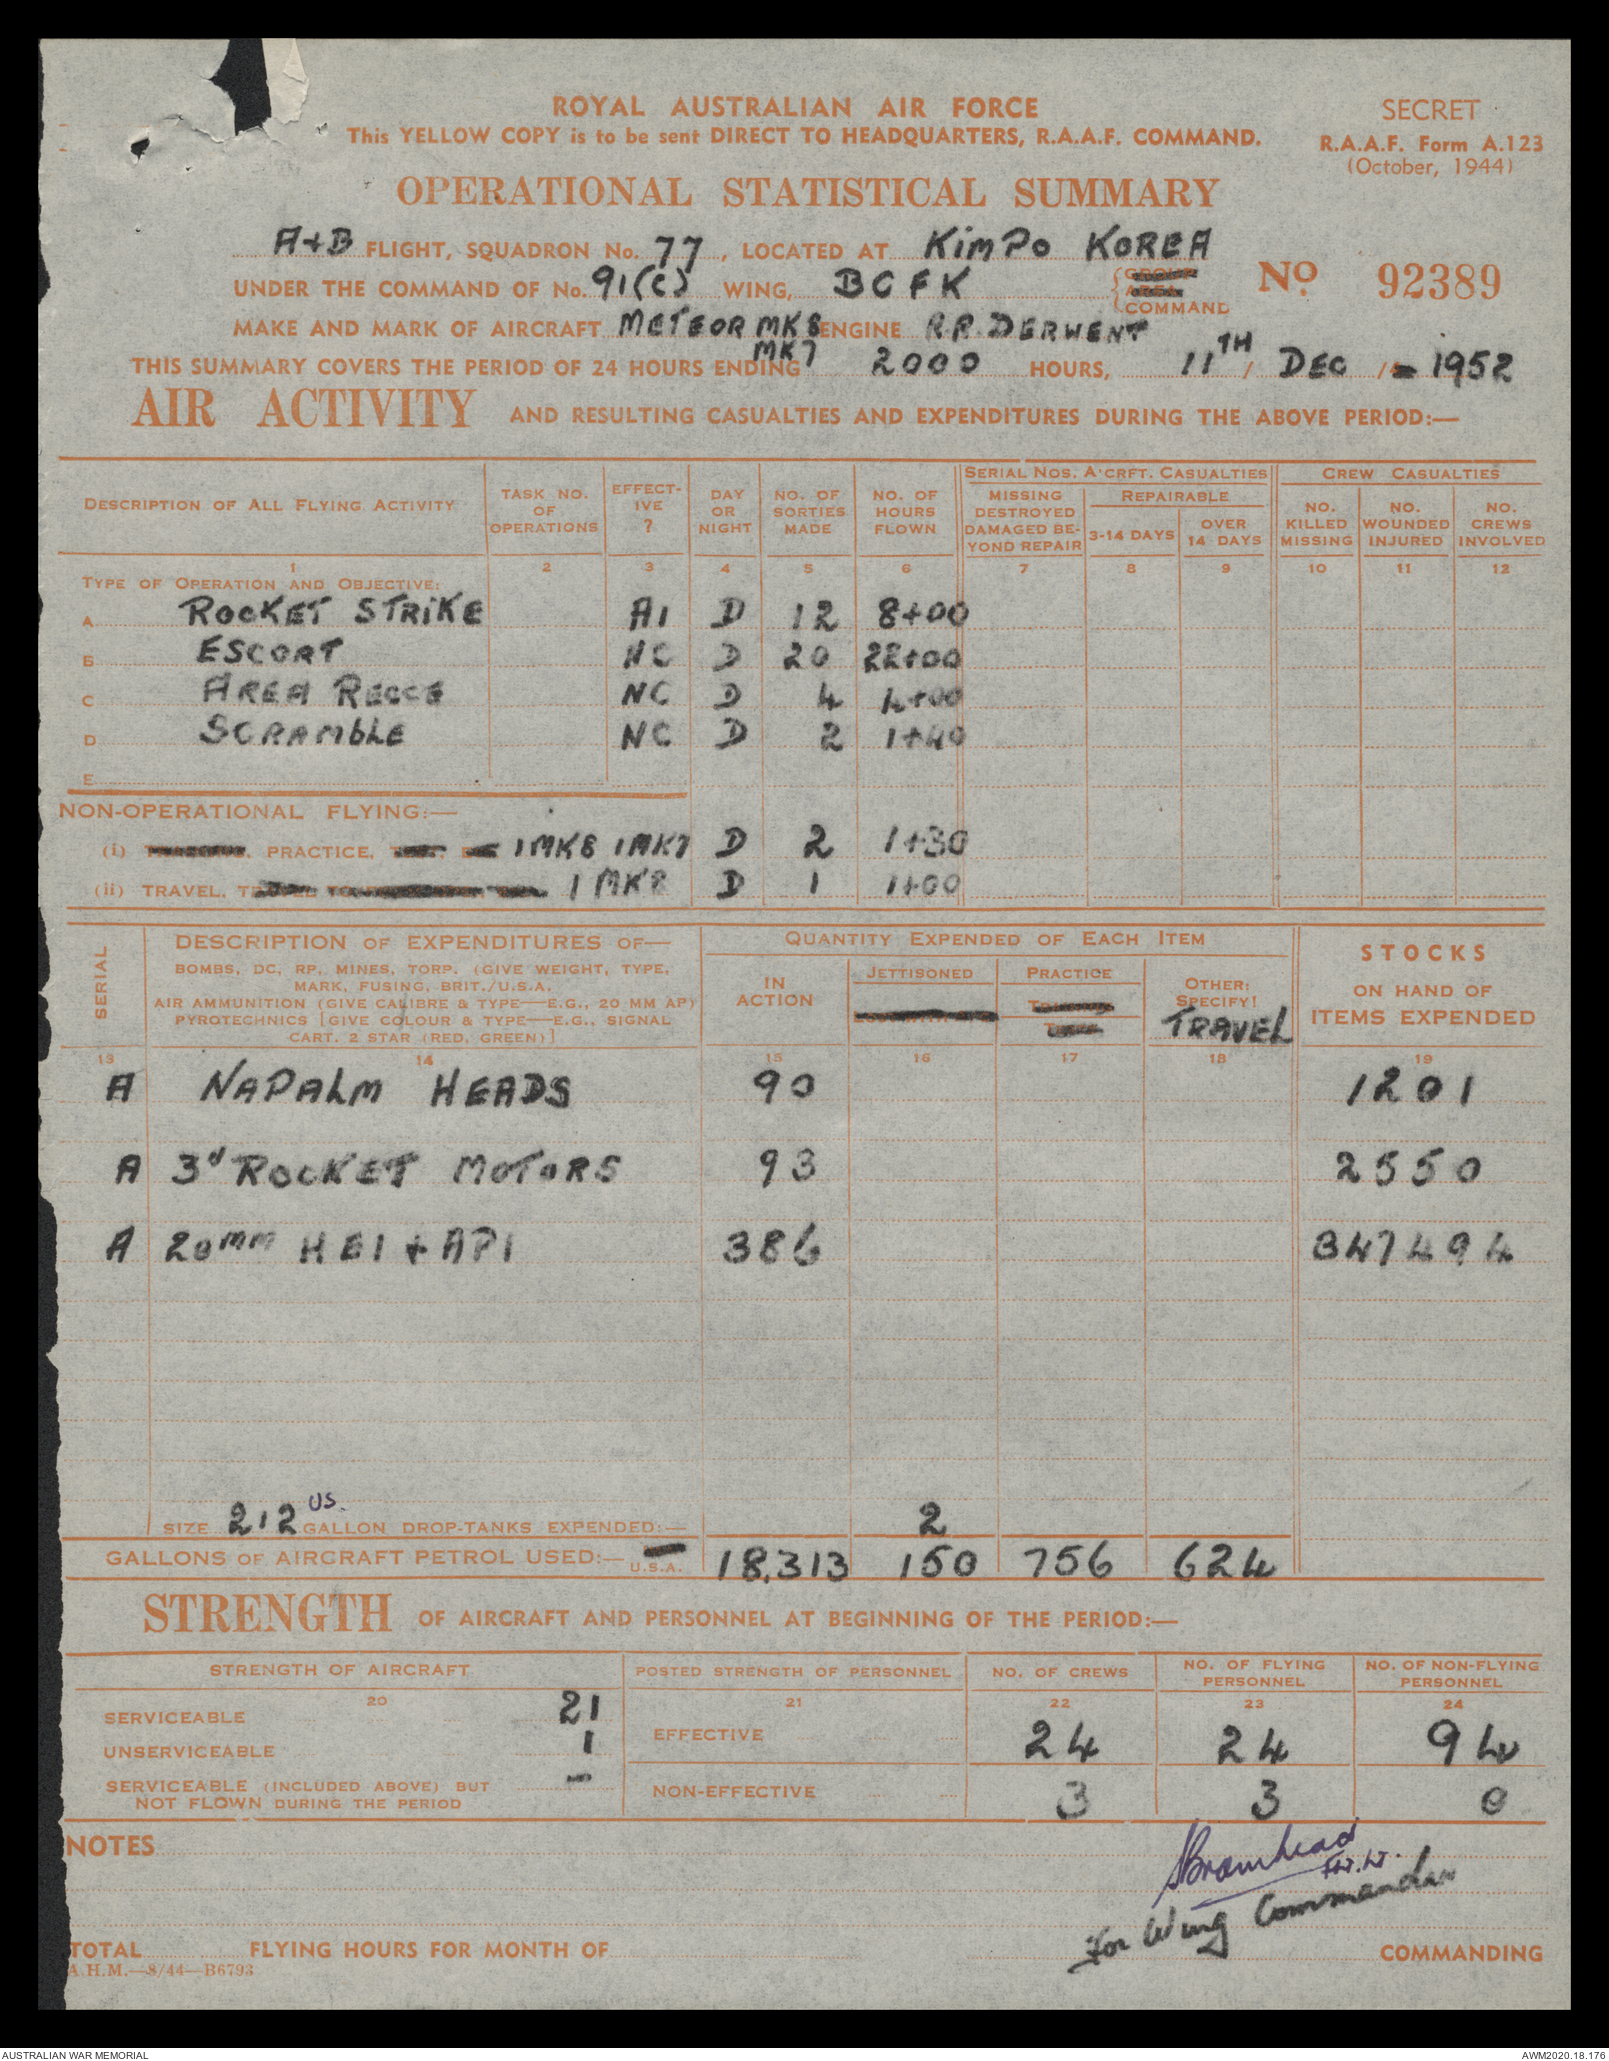 ROYAL AUSTRALIAN AIR FORCE
SECRET
This YELLOW COPY is to be sent DIRECT TO HEADQUARTERS, R.A.A.F. COMMAND.
R.A.A.F. Form A.123
(October, 1944)
OPERATIONAL STATISTICAL SUMMARY
A+B FLIGHT, SQUADRON No. 77, LOCATED AT KimPo KOREA
UNDER THE COMMAND OF No. 91(C) WING, BCFK COMMAND
No. 92389
MAKE AND MARK OF AIRCRAFT METEOR MK8 ENGINE R.R. DERWENT
MK7
THIS SUMMARY COVERS THE PERIOD OF 24 HOURS ENDING 2000 HOURS, 11TH / DEC / 1952
AIR ACTIVITY AND RESULTING CASUALTIES AND EXPENDITURES DURING THE ABOVE PERIOD:—
DESCRIPTION OF ALL FLYING ACTIVITY
TASK NO. OF OPERATIONS
EFFECT-IVE ?
DAY OR NIGHT
NO. OF SORTIES MADE
NO. OF HOURS FLOWN
SERIAL NOS. A'CRFT. CASUALTIES
MISSING DESTROYED DAMAGED BE-YOND REPAIR
REPAIRABLE
3-14 DAYS
OVER 14 DAYS
CREW CASUALTIES
NO. KILLED MISSING
NO. WOUNDED INJURED
NO. CREWS INVOLVED
1 2 3 4 5 6 7 8 9 10 11 12
TYPE OF OPERATION AND OBJECTIVE:
A ROCKET STRiKE A1 D 12 8+00
B ESCORT NC D 20 22+00
C AREA RECCE NC D 4 4+00
D SCRAMbLE NC D 2 1+40
E
NON-OPERATIONAL FLYING:—
(i) PRACTICE, 1MK8 1MK7 D 2 1+30
(ii) TRAVEL, 1 MK8 D 1 1+00
SERIAL
DESCRIPTION OF EXPENDITURES OF—
BOMBS, DC, RP, MINES, TORP. (GIVE WEIGHT, TYPE,
MARK, FUSING, BRIT./U.S.A.
AIR AMMUNITION (GIVE CALIBRE & TYPE—E.G., 20 MM AP)
PYROTECHNICS [GIVE COLOUR & TYPE—E.G., SIGNAL
CART. 2 STAR (RED, GREEN)]
QUANTITY EXPENDED OF EACH ITEM
IN ACTION
JETTISONED
PRACTICE
OTHER: SPECIFY!
TRAVEL
STOCKS
ON HAND OF
ITEMS EXPENDED
13 14 15 16 17 18 19
A NAPALM HEADS 90 1201
A 3" ROCKET MOTORS 93 2550
A 20mm HEI + API 386 347494
SIZE 212 US. GALLON DROP-TANKS EXPENDED:— 2
GALLONS OF AIRCRAFT PETROL USED:— U.S.A. 18,313 150 756 624
STRENGTH OF AIRCRAFT AND PERSONNEL AT BEGINNING OF THE PERIOD:—
STRENGTH OF AIRCRAFT
POSTED STRENGTH OF PERSONNEL
NO. OF CREWS
NO. OF FLYING PERSONNEL
NO. OF NON-FLYING PERSONNEL
20 21 22 23 24
SERVICEABLE 21
UNSERVICEABLE 1
SERVICEABLE (INCLUDED ABOVE) BUT
NOT FLOWN DURING THE PERIOD -
EFFECTIVE 24 24 94
NON-EFFECTIVE 3 3 0
NOTES
Bramhead
Flt.Lt.
For Wing Commander
TOTAL FLYING HOURS FOR MONTH OF
COMMANDING
A.H.M.—8/44—B6793
AUSTRALIAN WAR MEMORIAL
AWM2020.18.176